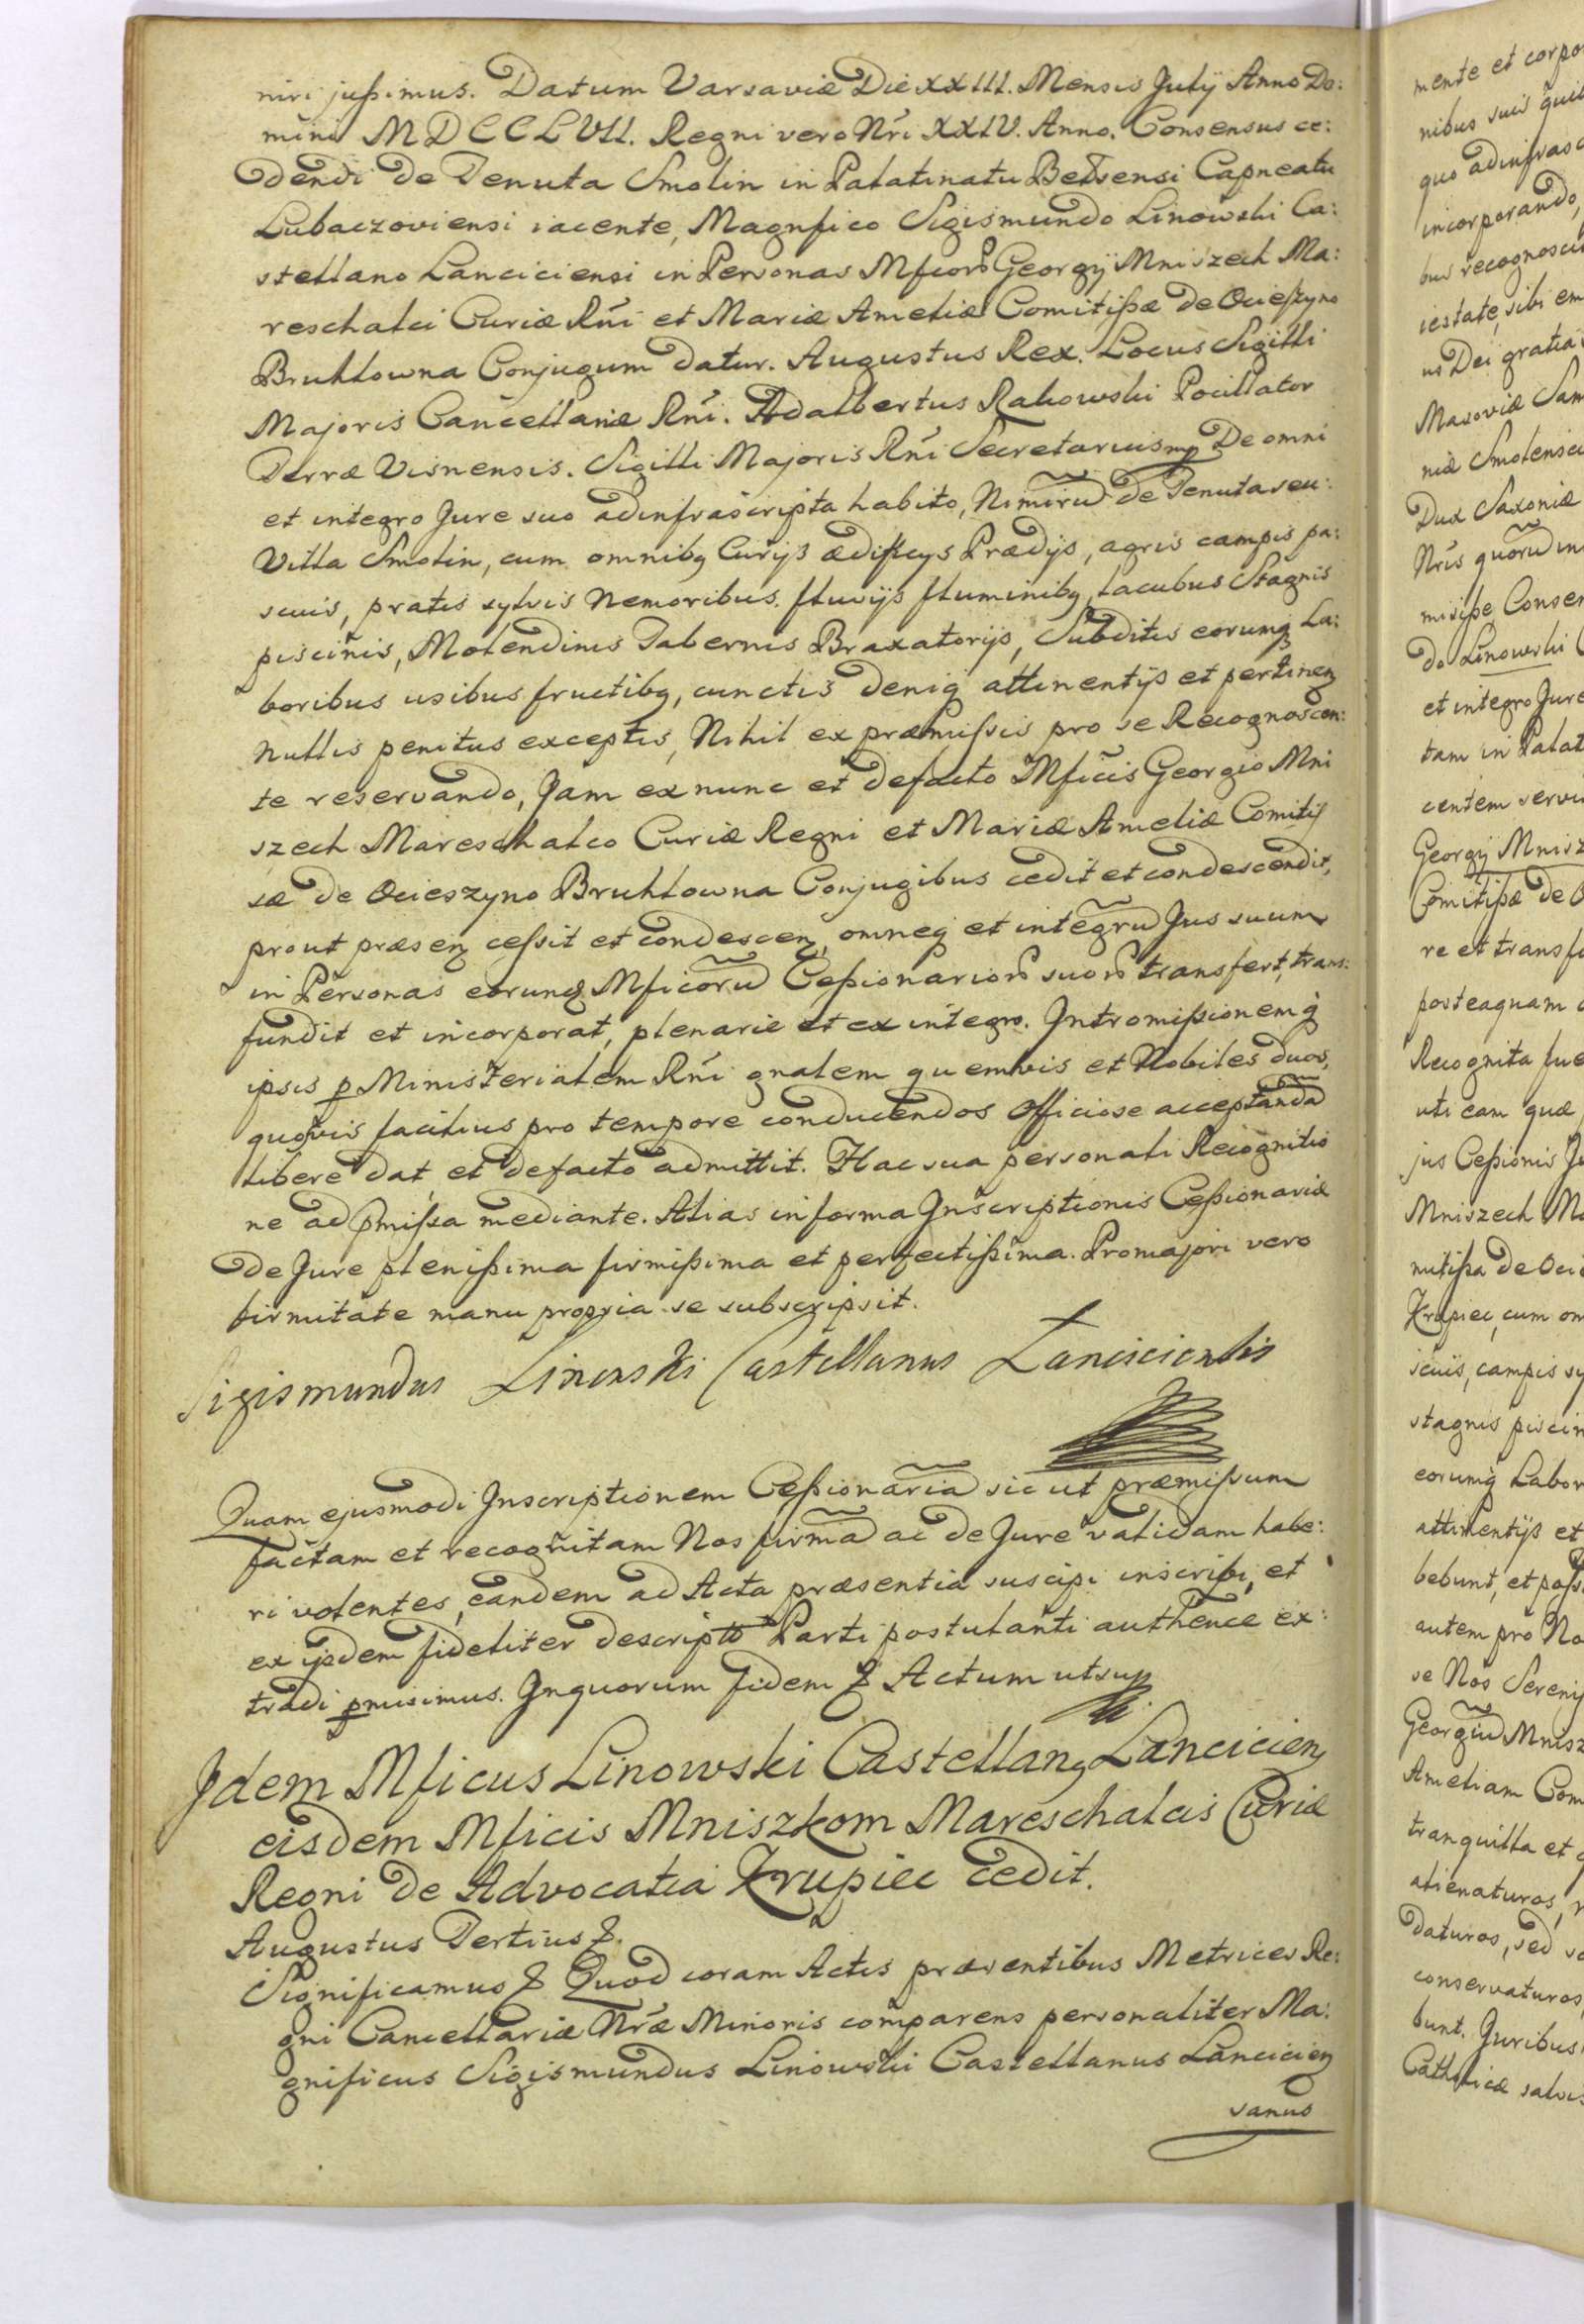 niri jussimus. Datum Varsaviæ Die XXIII. Mensis Julÿ Anno Do:
mini MDCCLVII. Regni vero Nri XXIV. Anno. Consensus ce:
dendi de Tenuta Smolin in Palatinatu Belzensi Capneatu
Lubaczoviensi iacente, Magnfico Sigismundo Linowski Ca:
stellano Lanciciensi in Personas Mficor Georgÿ Mniszech Ma:
reschalci Curiæ Rni et Mariæ Ameliæ Comitissæ de Ocieszyno
Bruhlowna Conjugum datur. Augustus Rex. Locus Sigilli
Majoris Cancellariæ Rni. Adalbertus Rakowski Pocillator
Terræ Visnensis. Sigilli Majoris Rni Secretarius mp De omni
et integro Jure suo adinfrascripta habito, Nimirũ de Tenuta seu
Villa Smolin, cum omnibq Curÿs ædificÿs Prædÿs, agris campis pa:
scuis, pratis sylvis Nemoribus. fluvÿs fluminibq, lacubus Stagnis
piscinis, Molendinis Tabernis Braxatorÿs, Subditis eorumq La:
boribus usibus fructibq, cunctis deniq attinentÿs et pertinen
nullis penitus exceptis, Nihil ex præmissis pro se Recognoscen:
te reservando, Jam ex nunc et defacto Mficis Georgio Mni
szech Mareschalco Curiæ Regni et Mariæ Ameliæ Comitis
sæ de Ocieszyno Bruhlowna Conjugibus cedit et condescendit,
prout præsen cessit et condescen, omneq et integrũ Jus suum
in Personas eorundq Mficorũ Cessionarior suor transfert, trans:
fundit et incorporat, plenarie et ex integro. Intromissionemq
ipsis p Ministerialem Rni gnalem quemvis et Nobiles duos,
quosvis facilius pro tempore conducendos officiose acceptandã
libere dat et defacto admittit. Hac sua personali Recognitio
ne ad pmissa mediante. Alias in forma Inscriptionis Cessionariæ
de Jure plenissima firmissima et perfectissima. Pro majori vero
firmitate manu propria se subscripsit.
Sigismundus Linowski Castellanus Lanciciensis
Quam ejusmodi Inscriptionem Cessionariã sic ut præmissum
factam et recognitam Nos firmã ac de Jure validam habe:
ri volentes, eandem ad Acta præsentia suscipi inscribi, et
ex ijsdem fideliter descriptã Parti postulanti authence ex:
tradi pmisimus. In quorum fidem & Actum ut sup
Idem Mficus Linowski Castellanq Lancicien
eisdem Mficis Mniszkom Mareschalcis Curiæ
Regni de Advocatia Krupiec cedit.
Augustus Tertius &.
Significamus & Quod coram Actis præsentibus Metrices Re:
gni Cancellariæ Nræ Minoris comparens personaliter Ma:
gnificus Sigismundus Linowski Castellanus Lancicien
sanus
mente et corpo
nibus suis quib
quo adinfrasc
incorporando,
bus recognosci
iestate, sibi em
us Dei gratia
Masoviæ Sam
niæ Smolensci
Dux Saxoniæ
Nris quorũ in
misisse Consen
do Linowski C
et integro Jure
tam in Palat
centem servi
Georgÿ Mnisz
Comitissæ de O
re et transfu
posteaquam c
Recognita fue
uti eam quæ
jus Cessionis Ju
Mniszech Ma
mitissa de Ocie
Krupiec, cum om
scuis, campis sy
stagnis piscin
eorumq Labor
attinentÿs et
bebunt, et poss
autem pro No
se Nos Sereniss
Georgiũ Mnisz
Ameliam Com
tranquilla et q
alienaturos, n
daturos, sed sa
conservaturos,
bunt. Juribus
Catholicæ salvis